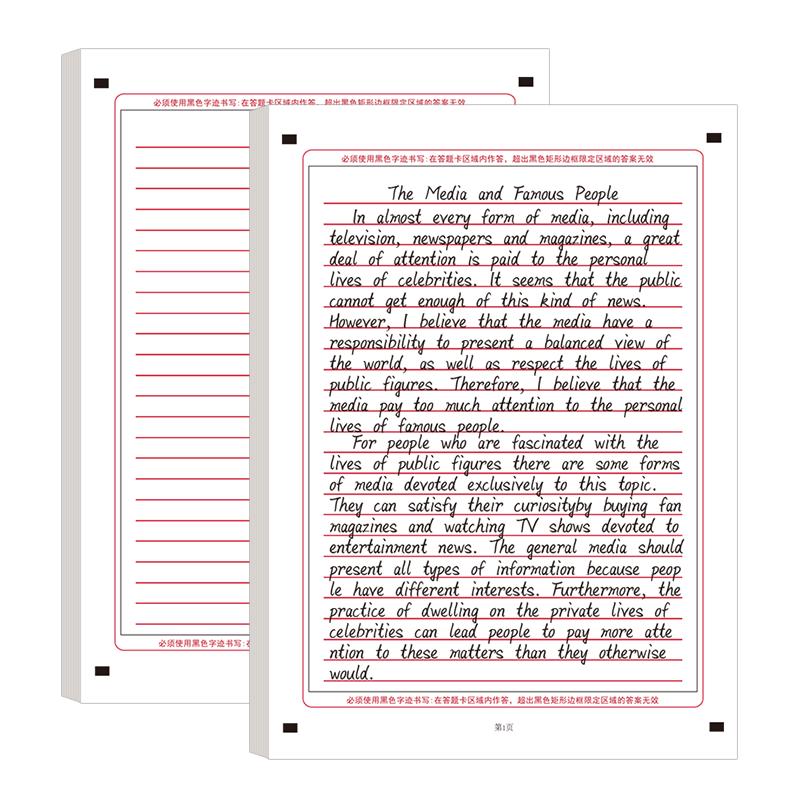 必须使用黑色字迹书写:在答题卡区域内作答，超出黑色矩形边框限定区域的答案无效
必须使用黑色字迹书写:在
必须使用黑色字迹书写:在答题卡区域内作答，超出黑色矩形边框限定区域的答案无效
The Media and Famous People
In almost every form of media, including
television, newspapers and magazines, a great
deal of attention is paid to the personal
lives of celebrities. It seems that the public
cannot get enough of this kind of news.
However, I believe that the media have a
responsibility to present a balanced view of
the world, as well as respect the lives of
public figures. Therefore, I believe that the
media pay too much attention to the personal
lives of famous people.
For people who are fascinated with the
lives of public figures there are some forms
of media devoted exclusively to this topic.
They can satisfy their curiosityby buying fan
magazines and watching TV shows devoted to
entertainment news. The general media should
present all types of information because peop
le have different interests. Furthermore, the
practice of dwelling on the private lives of
celebrities can lead people to pay more atte
ntion to these matters than they otherwise
would.
必须使用黑色字迹书写:在答题卡区域内作答，超出黑色矩形边框限定区域的答案无效
第1页